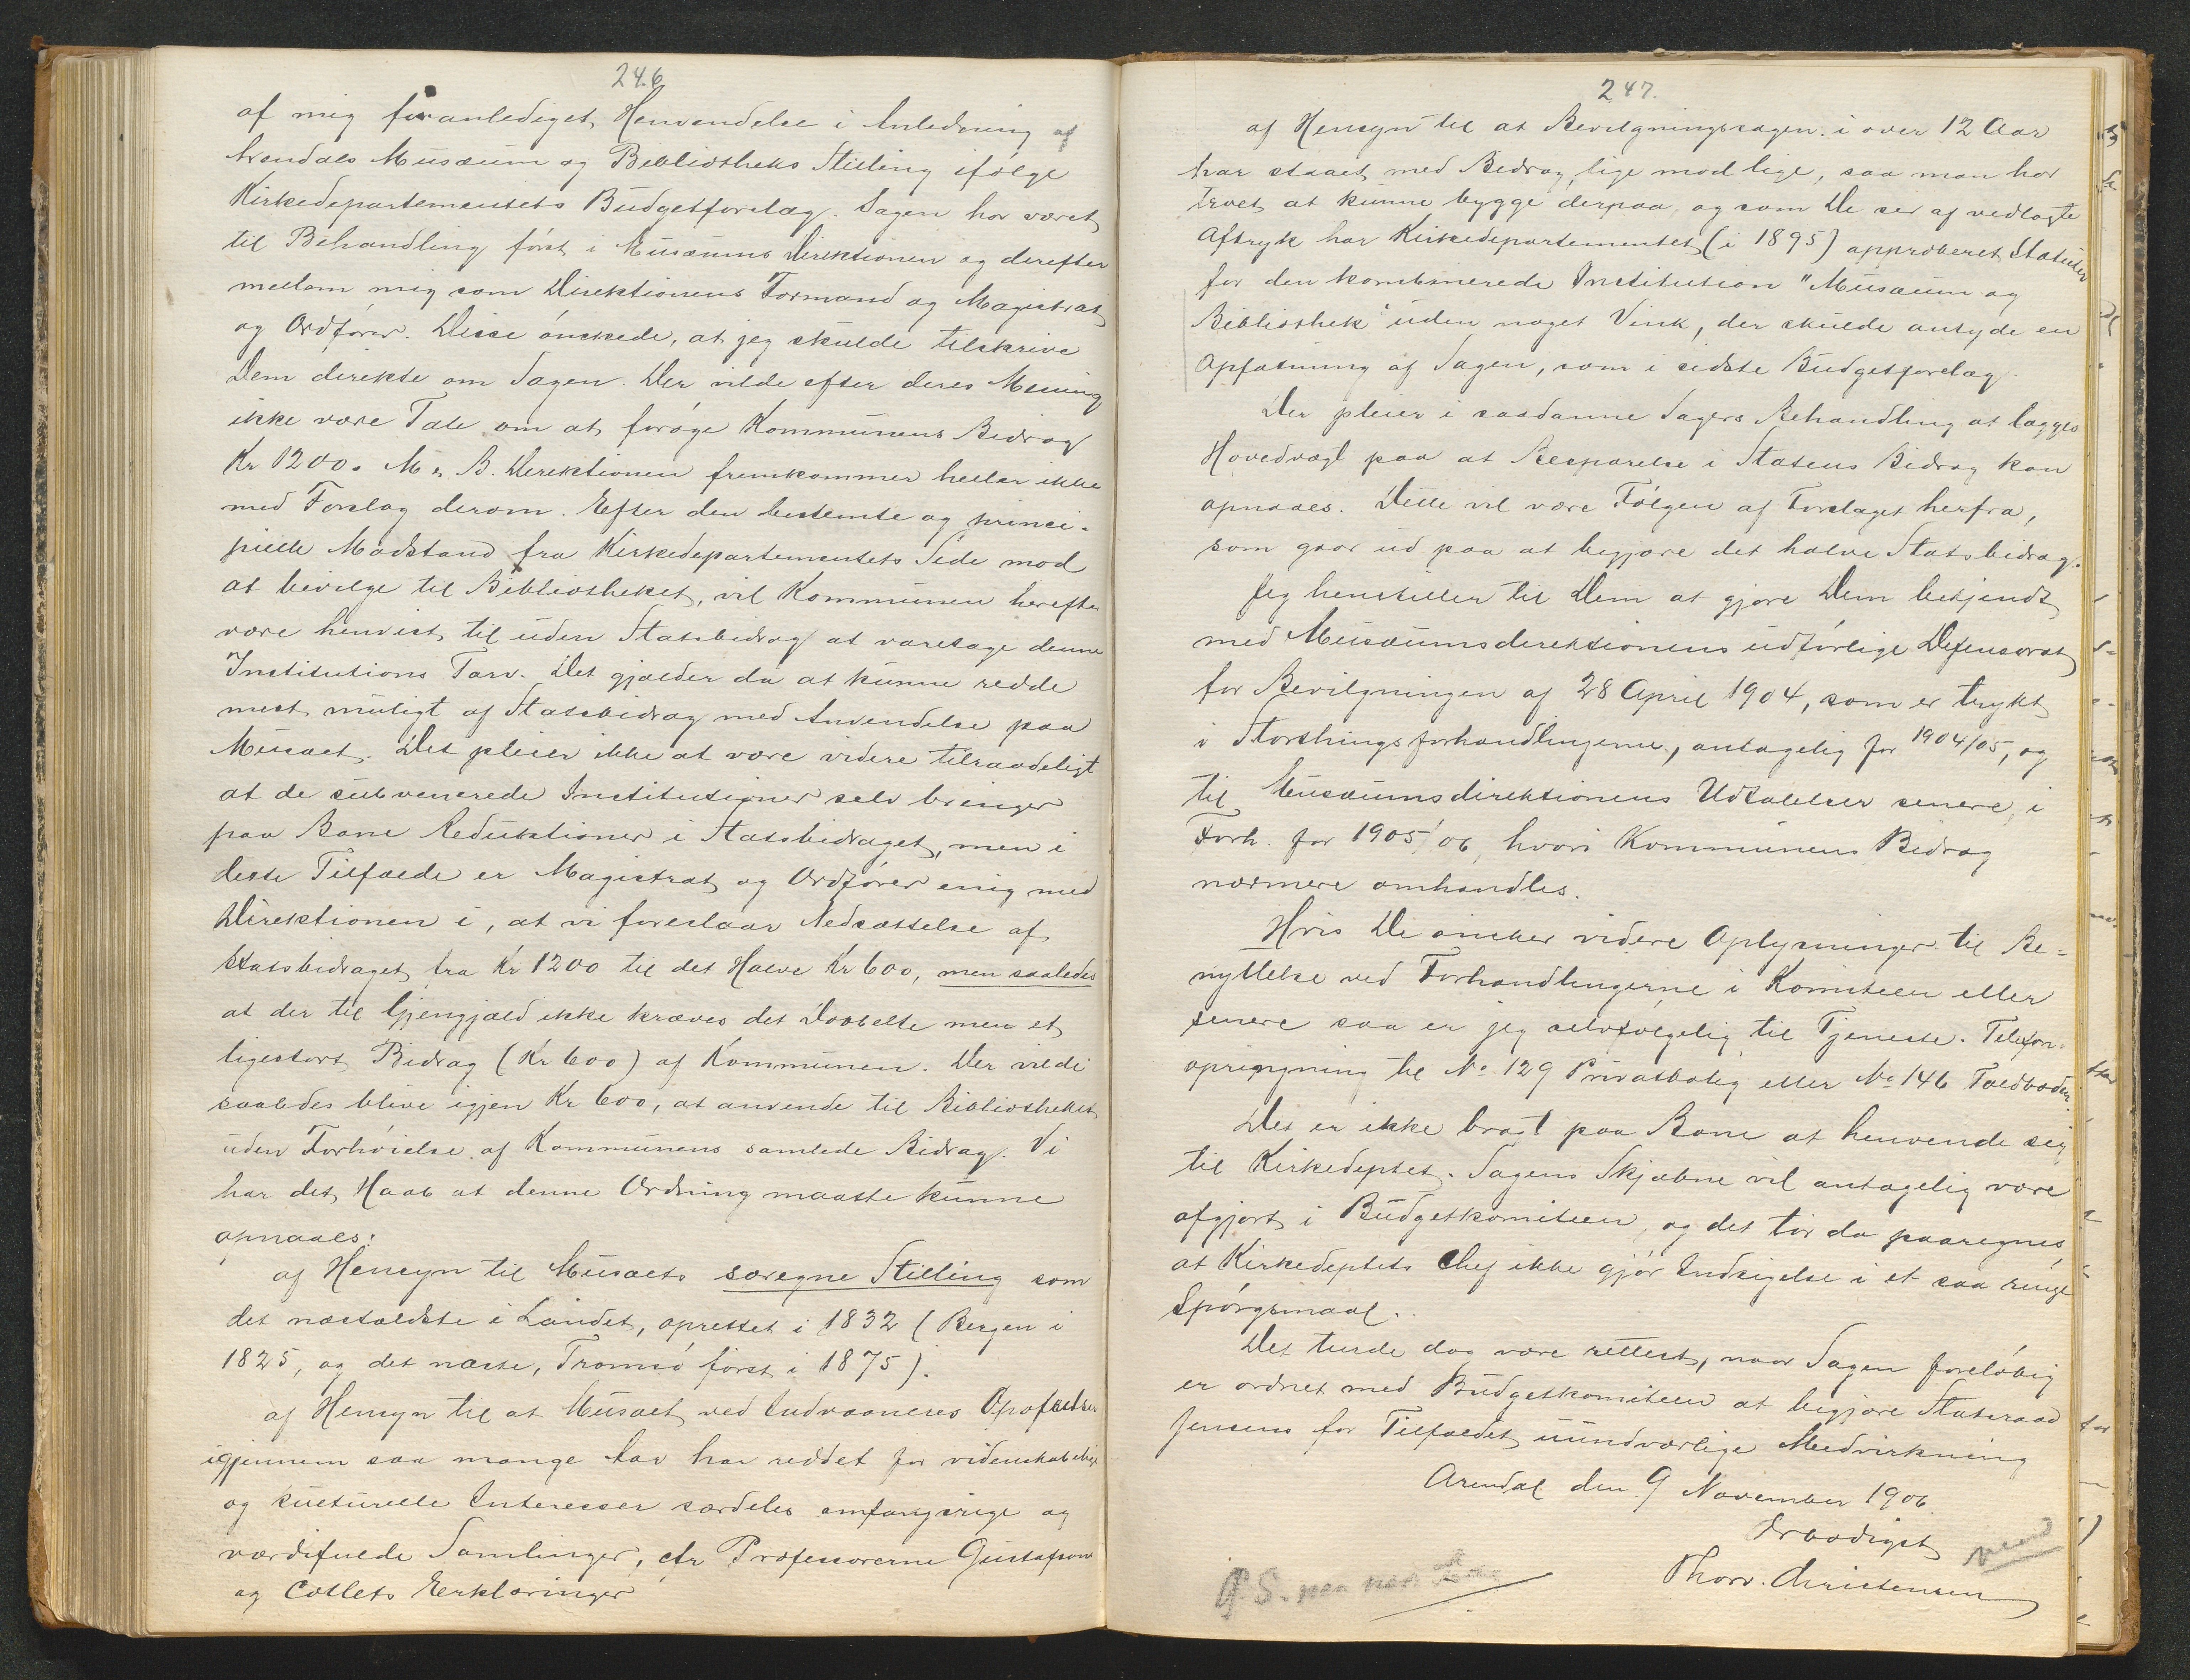 246
af mig foranlediget Henvendelse i Anledning af
Arendals Musæum og Bibliotheks Stilling ifølge
Kirkedepartementets Budgetforslag. Sagen har været
til Behandling først i Musæums Direktionen og derefter
mellem mig som Direktionens Formand og Magistrat
og Ordfører. Disse ønskede, at jeg skulde tilskrive
Dem direkte om Sagen. Der vilde efter deres Mening
ikke være Tale om at forøge Kommunens Bidrag
Kr 1200. M. B. Direktionen fremkommer heller ikke
med Forslag derom. Efter den bestemte og princi-
pielle Modstand fra Kirkedepartementets Side mod
at bevilge til Bibliotheket, vil Kommunen herefter
være henvist til uden Statsbidrag at varetage denne
Institutions Tarv. Det gjælder da at kunne redde
mest muligt af Statsbidrag med Anvendelse paa
Musæet. Det pleier ikke at være videre tilraadeligt
at de subvenerede Institutioner selv bringer
paa Bane Reduktioner i Statsbidraget, men i
dette Tilfælde er Magistrat og Ordfører enig med
Direktionen i, at vi foreslaar Nedsættelse af
Statsbidraget fra Kr 1200 til det Halve Kr 600, men saaledes
at der til Gjengjæld ikke kræves det Dobbelte men et
ligestort Bidrag (Kr 600) af Kommunen. Der vilde
saaledes blive igjen Kr 600, at anvende til Bibliotheket
uden Forhøielse af Kommunens samlede Bidrag. Vi
har det Haab at denne Ordning maatte kunne
opnaaes:
af Hensyn til Musæets særegne Stilling som
det næstældste i Landet, oprettet i 1832 (Bergen i
1825, og det næste, Tromsø først i 1875).
af Hensyn til at Musæet ved Indvaaneres Opofrelser
igjennem saa mange Aar har reddet for videnskabelige
og kulturelle Interesser særdeles omfangsrige og
værdifulde Samlinger, cfr Professorerne Gustafsons
og Colletts Erklæringer
247.
af Hensyn til at Bevilgningssagen i over 12 Aar
har staaet med Bidrag, lige mod lige, saa man har
troet at kunne bygge derpaa, og som De ser af vedlagte
Aftryk har Kirkedepartementet (i 1895) approberet Statuter
for den kombinerede Institution "Musæum og
Bibliothek" uden noget Vink, der skulde antyde en
Opfatning af Sagen, som i sidste Budgetforslag.
Der pleier i saadanne Sagers Behandling at lægges
Hovedvægt paa at Besparelse i Statens Bidrag kan
opnaaes. Dette vil være Følgen af Forslaget herfra,
som gaar ud paa at begjære det halve Statsbidrag.
Jeg henstiller til Dem at gjøre Dem bekjendt
med Musæumsdirektionens udførlige Defensorat
for Bevilgningen af 28 April 1904, som er trykt
i Storthingsforhandlingerne, antagelig for 1904/05, og
til Musæumsdirektionens Udtalelser senere, i
Forh. for 1905/06, hvori Kommunens Bidrag
nærmere omhandles.
Hvis De ønsker videre Oplysninger til Be-
nyttelse ved Forhandlingerne i Komiteen eller
senere saa er jeg selvfølgelig til Tjeneste. Telefon-
opringning til No 129 Privatbolig eller No 146 Toldboden.
Det er ikke bragt paa Bane at henvende sig
til Kirkedeptet. Sagens Skjæbne vil antagelig være
afgjort i Budgetkomiteen, og det tør da paaregnes
at Kirkedeptets Chef ikke gjør Indsigelse i et saa ringe
Spørgsmaal.
Det turde dog være rettest, naar Sagen foreløbig
er ordnet med Budgetkomiteen at begjære Statsraad
Jensens for Tilfældet uundværlige Medvirkning
Arendal den 9 November 1906.
Ærbødigst
Thorv. Christensen
vend
P.S. paa næste Side